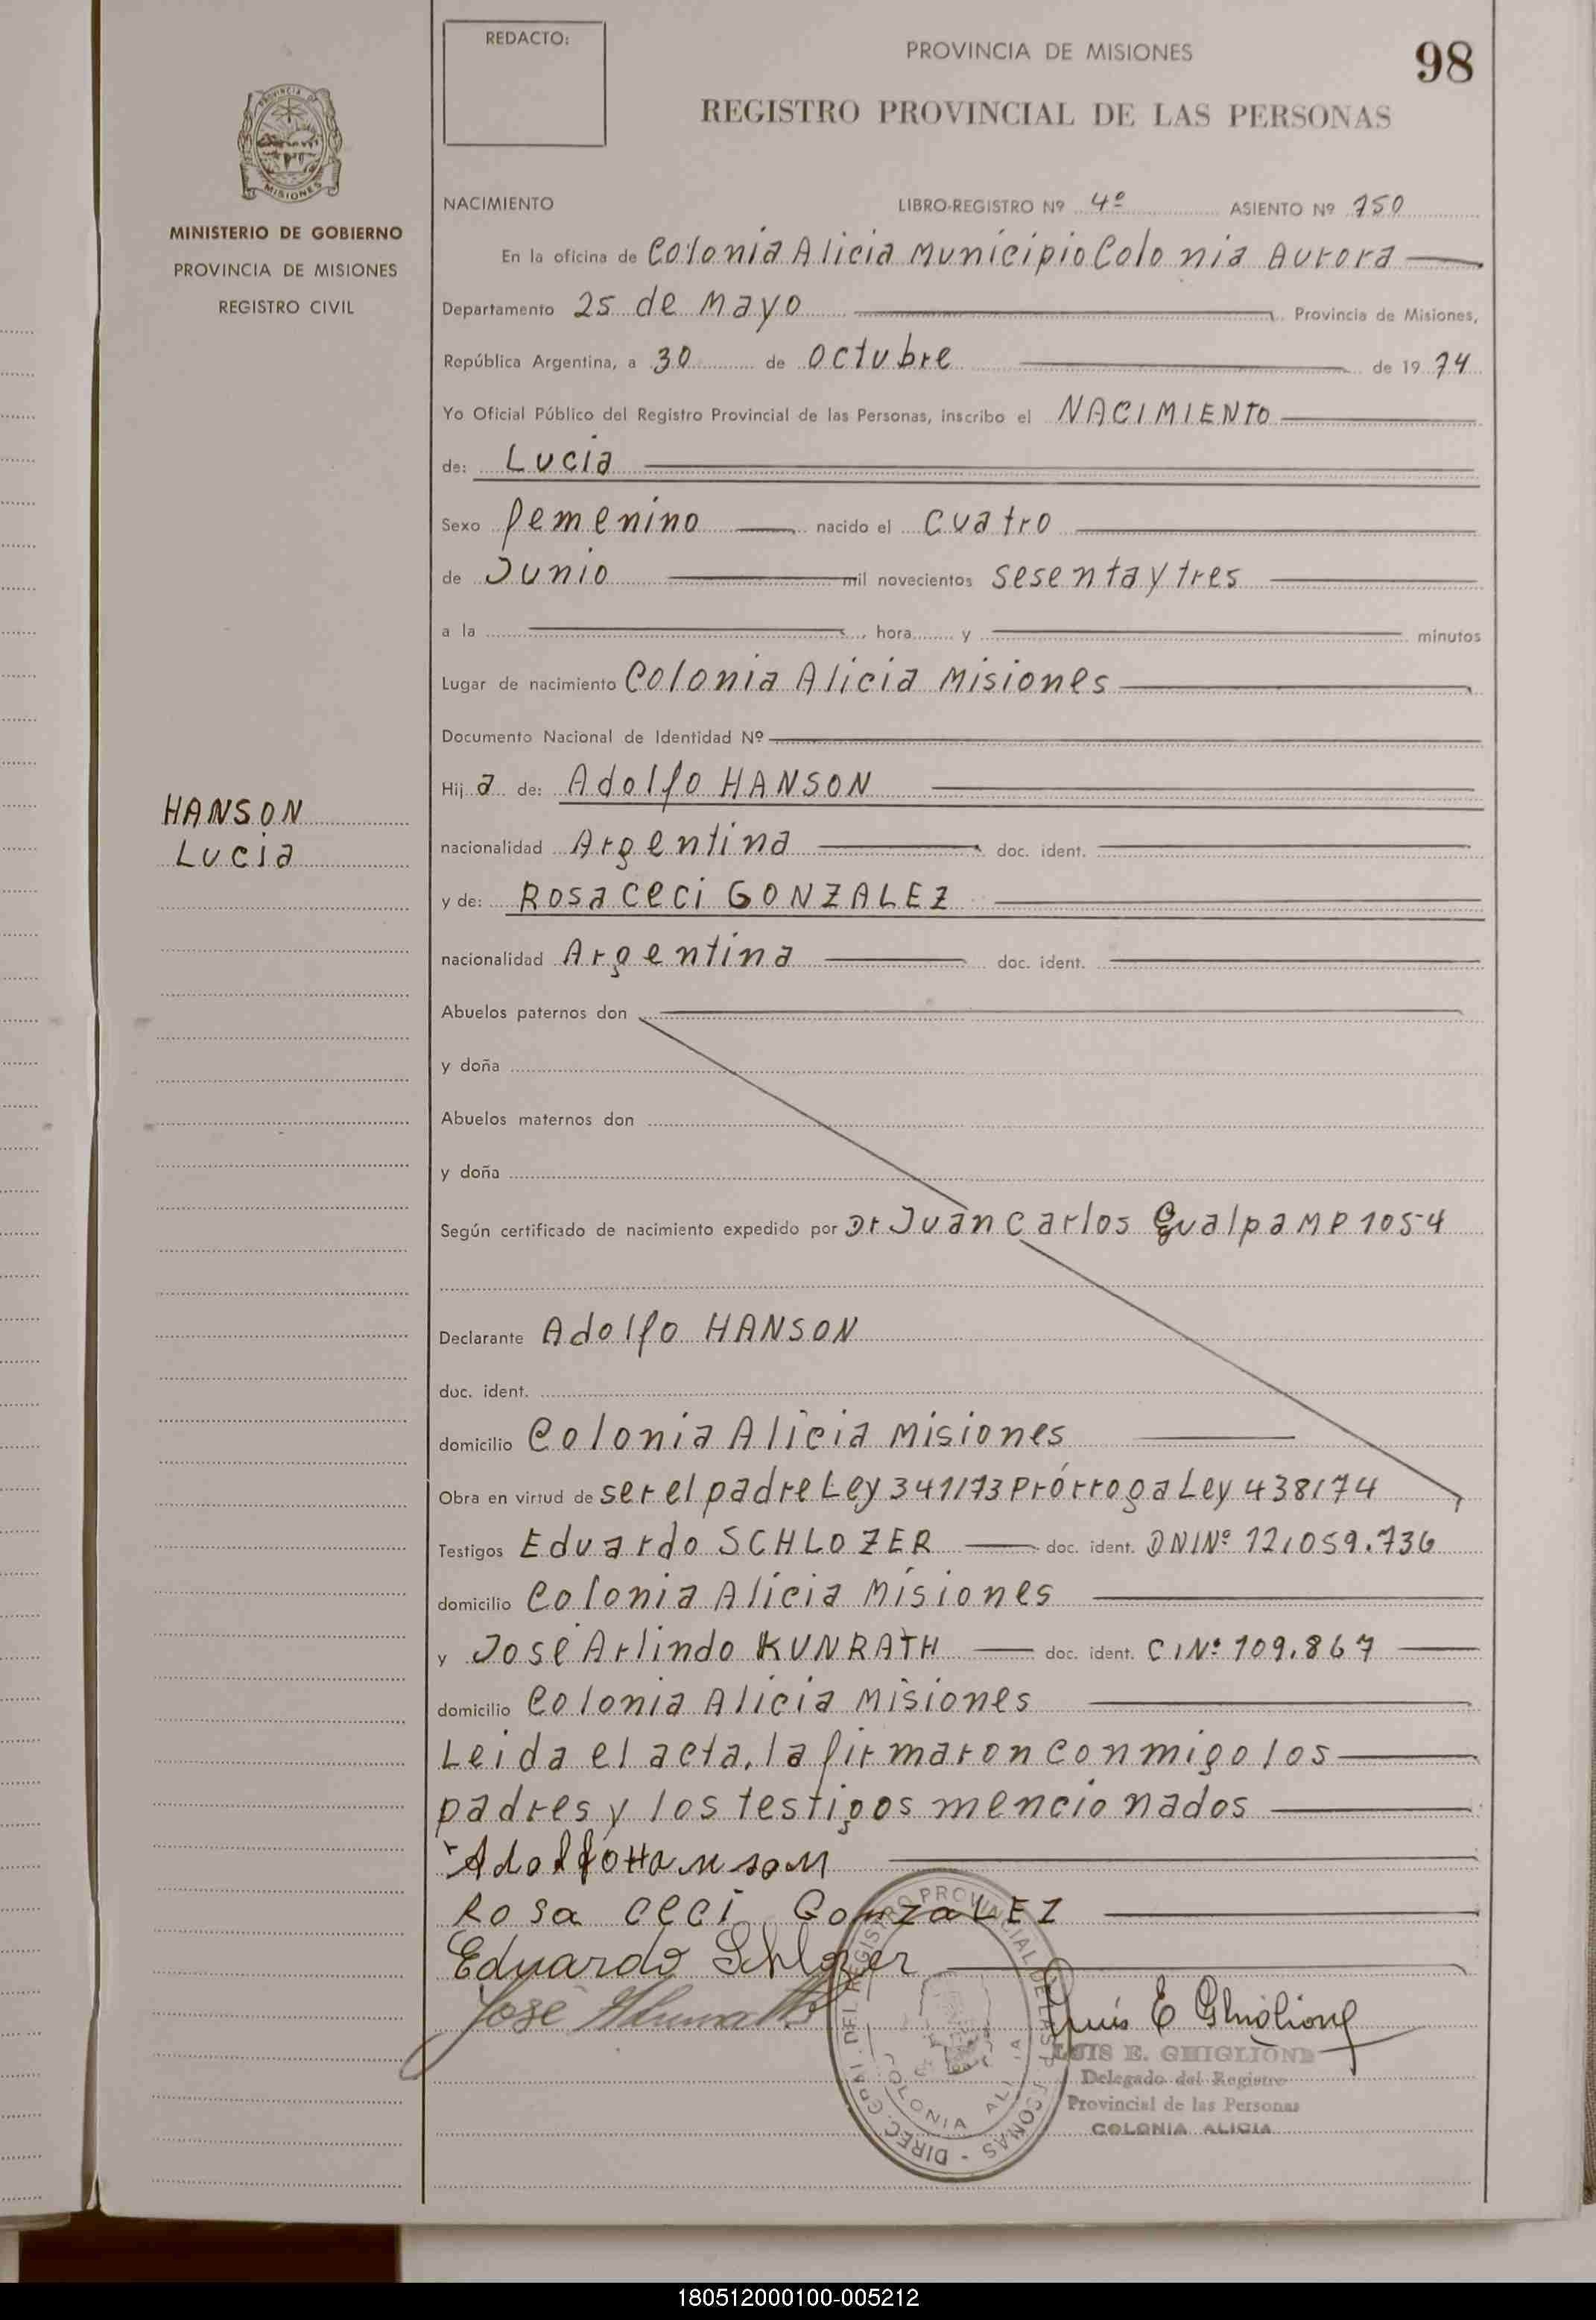 REDACTO:
PROVINCIA DE MISIONES
98
REGISTRO PROVINCIAL DE LAS PERSONAS
PROVINCIA DE
MISIONES
MINISTERIO DE GOBIERNO
PROVINCIA DE MISIONES
REGISTRO CIVIL
NACIMIENTO LIBRO-REGISTRO Nº 4º ASIENTO Nº 150
En la oficina de Colonia Alicia Municipio Colonia Aurora
Departamento 25 de Mayo Provincia de Misiones,
República Argentina, a 30 de octubre de 1974
Yo Oficial Público del Registro Provincial de las Personas, inscribo el NACIMIENTO
de: Lucia
Sexo femenino nacido el cuatro
de Junio mil novecientos sesenta y tres
a la , hora y minutos
Lugar de nacimiento Colonia Alicia Misiones
Documento Nacional de Identidad Nº
Hija de: Adolfo HANSON
HANSON
Lucia
nacionalidad Argentina doc. ident.
y de: Rosa Ceci GONZALEZ
nacionalidad Argentina doc. ident.
Abuelos paternos don
y doña
Abuelos maternos don
y doña
Según certificado de nacimiento expedido por Dr Juan Carlos Gualpa MP 1054
Declarante Adolfo HANSON
doc. ident.
domicilio Colonia Alicia Misiones
Obra en virtud de ser el padre Ley 341/73 Prórroga Ley 438/74
Testigos Eduardo SCHLOZER doc. ident. DNI Nº 12,059.736
domicilio Colonia Alicia Misiones
y José Arlindo KUNRATH doc. ident. CI Nº 109.867
domicilio Colonia Alicia Misiones
Leida el acta, la firmaron conmigo los
padres y los testigos mencionados
Adolfo Hanson
Rosa Ceci GonzaLEZ
Eduardo Schlozer
José Kunrath
Luis E Ghiglione
LUIS E. GHIGLIONE
Delegado del Registro
Provincial de las Personas
COLONIA ALICIA
DIREC. GRAL. DEL REGISTRO PROVINCIAL DE LAS PERSONAS
COLONIA ALICIA
180512000100-005212